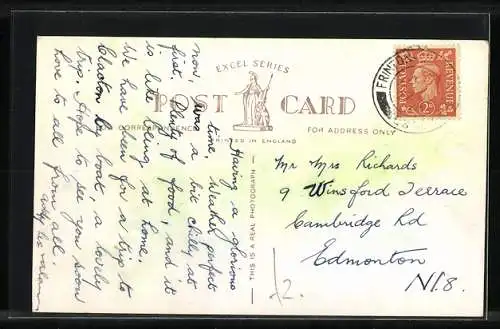 EXCEL SERIES
POST CARD
CORRESPONDENCE
PRINTED IN ENGLAND
FOR ADDRESS ONLY
THIS IS A REAL PHOTOGRAPH
FRINTON
POSTAGE
REVENUE
Having a glorious
time, weather perfect
now, was a bit chilly at
first. Plenty of food, and it
is like being at home,
We have been for a trip to
Clacton by boat, a lovely
trip. Hope to see you soon
love to all from all
Mr Mrs Richards
9 Winsford Terrace
Cambridge Rd
Edmonton
N.18.
12.